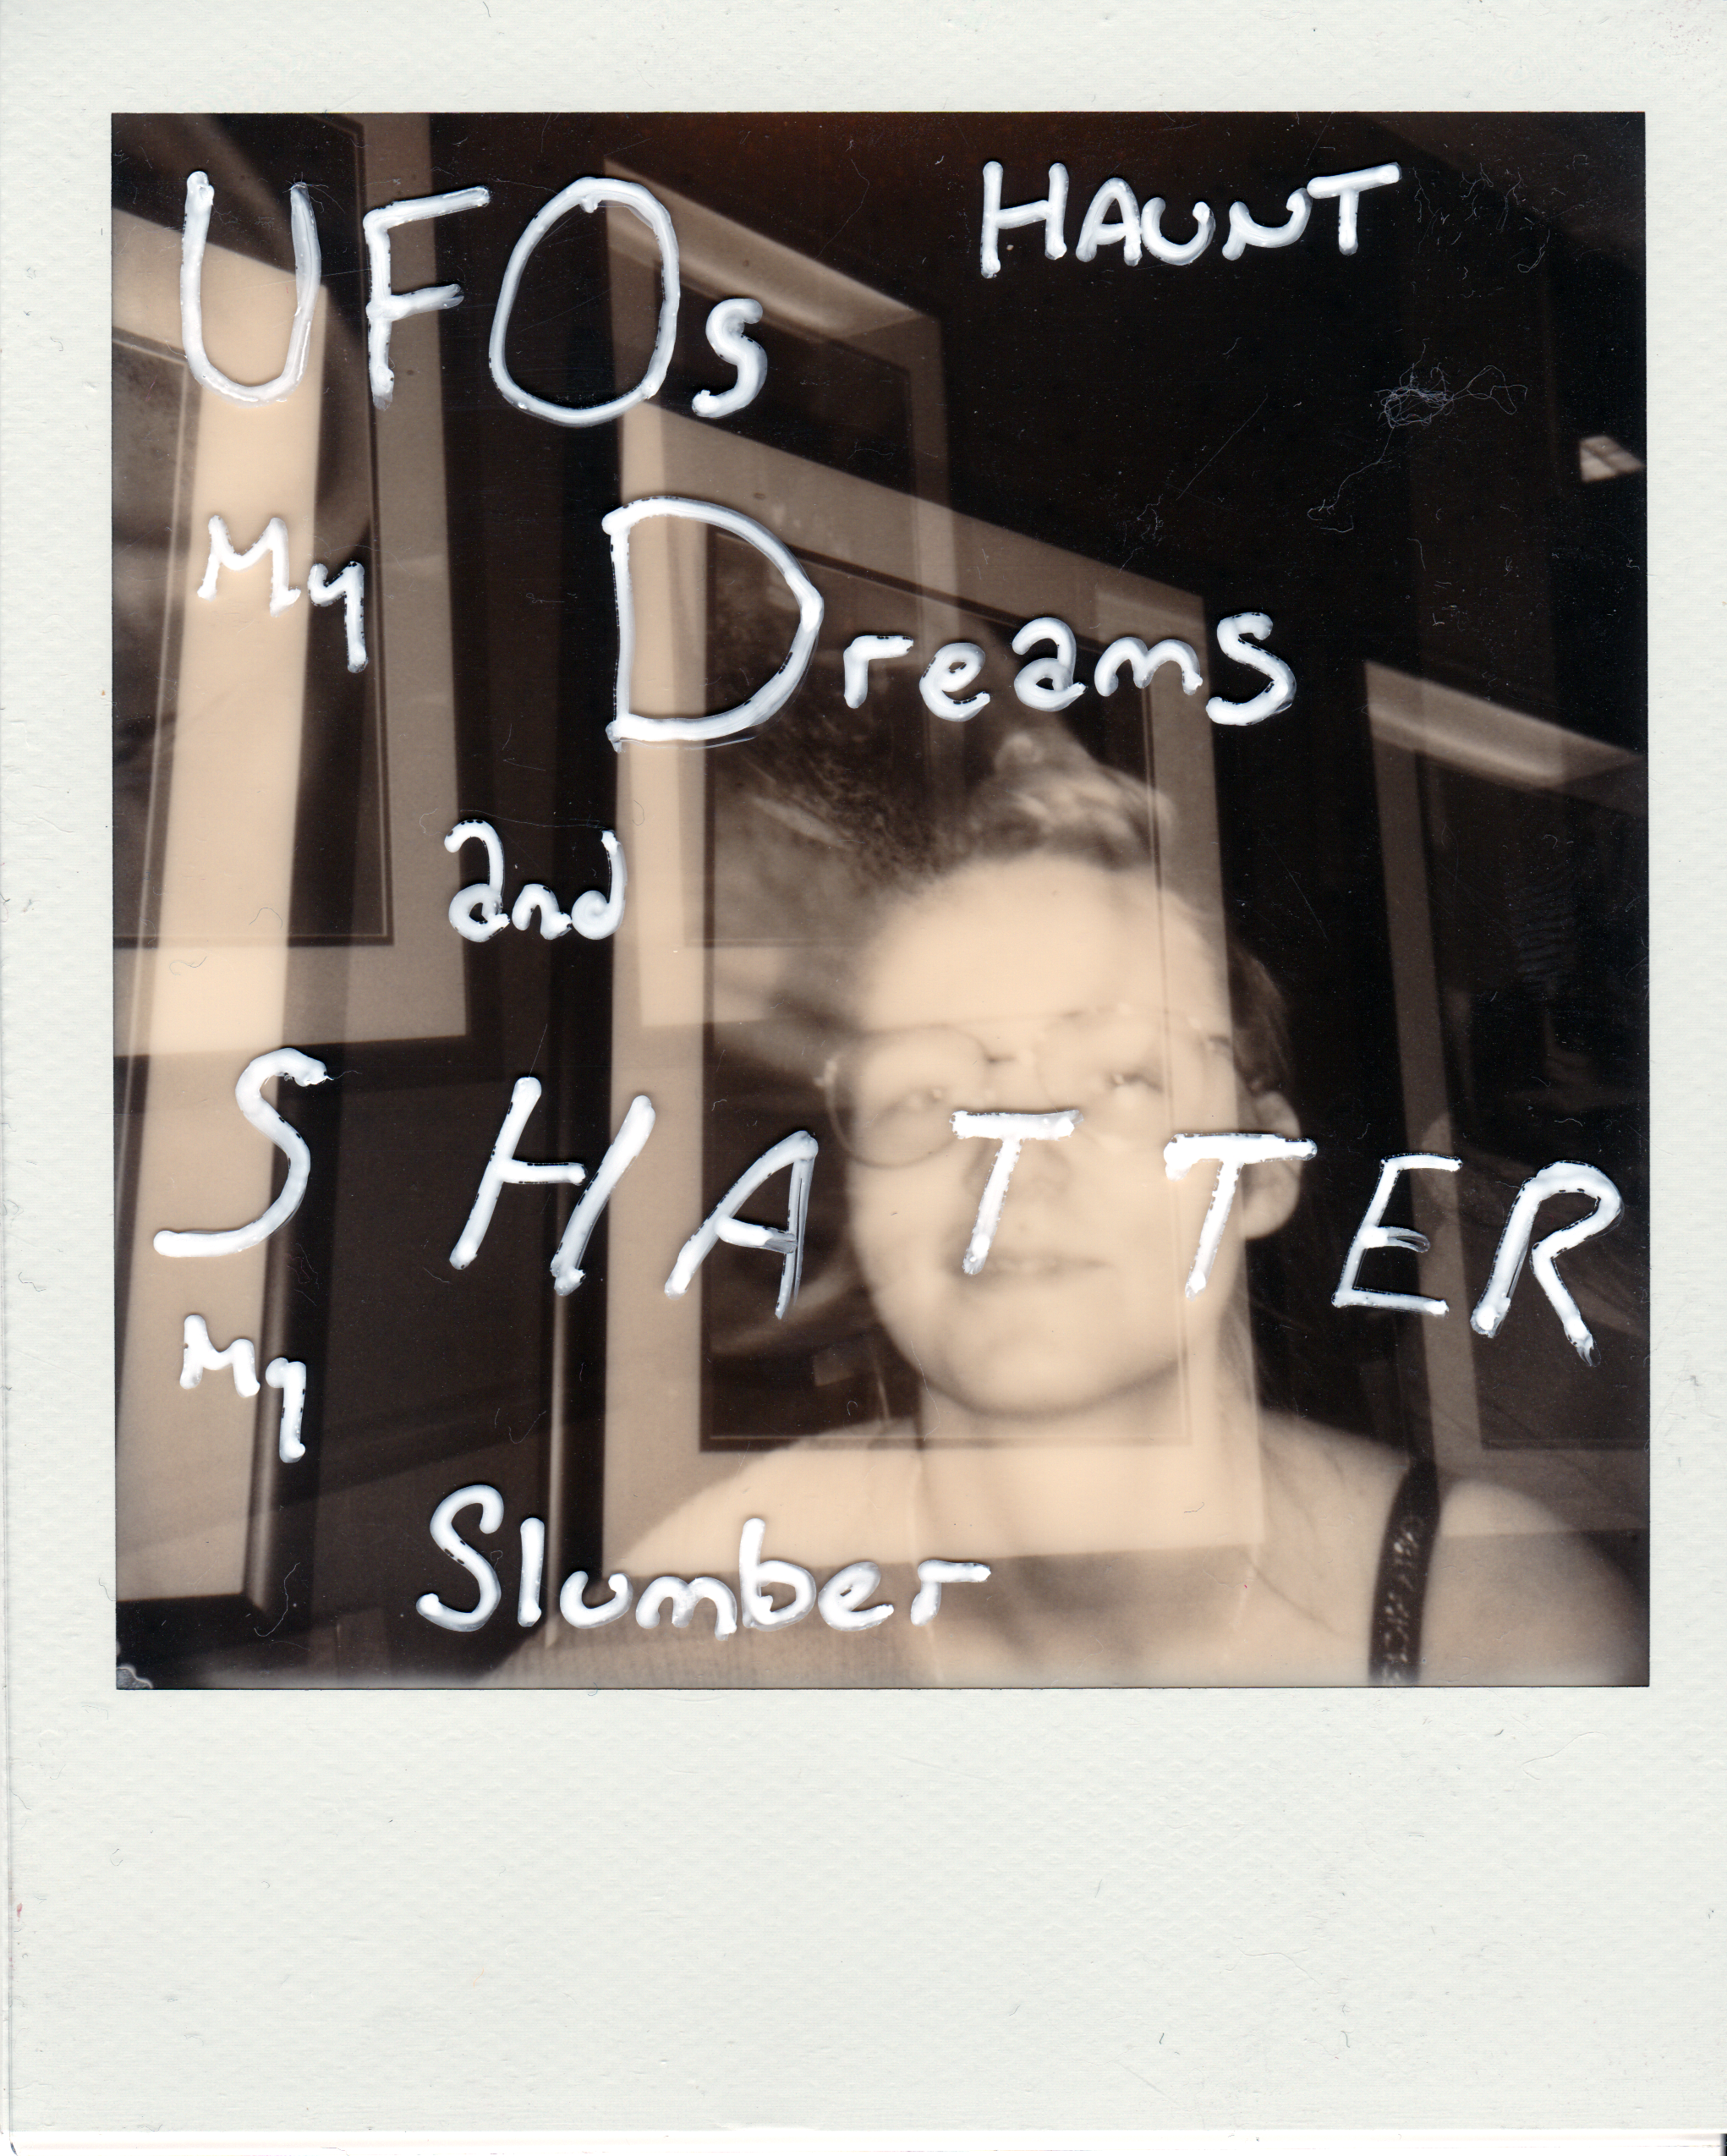 UFOs HAUNT
My Dreams
and
SHATTER
My
Slumber